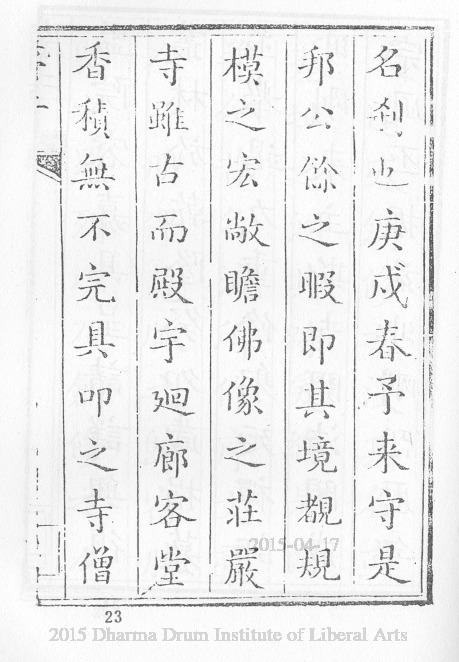 名刹也庚戍春予来守是
邦公餘之暇即其境覩規
模之宏敞瞻佛像之莊嚴
寺雖古而殿宇廻廊客堂
香積無不完具叩之寺僧
23
2015-04-17
2015 Dharma Drum Institute of Liberal Arts